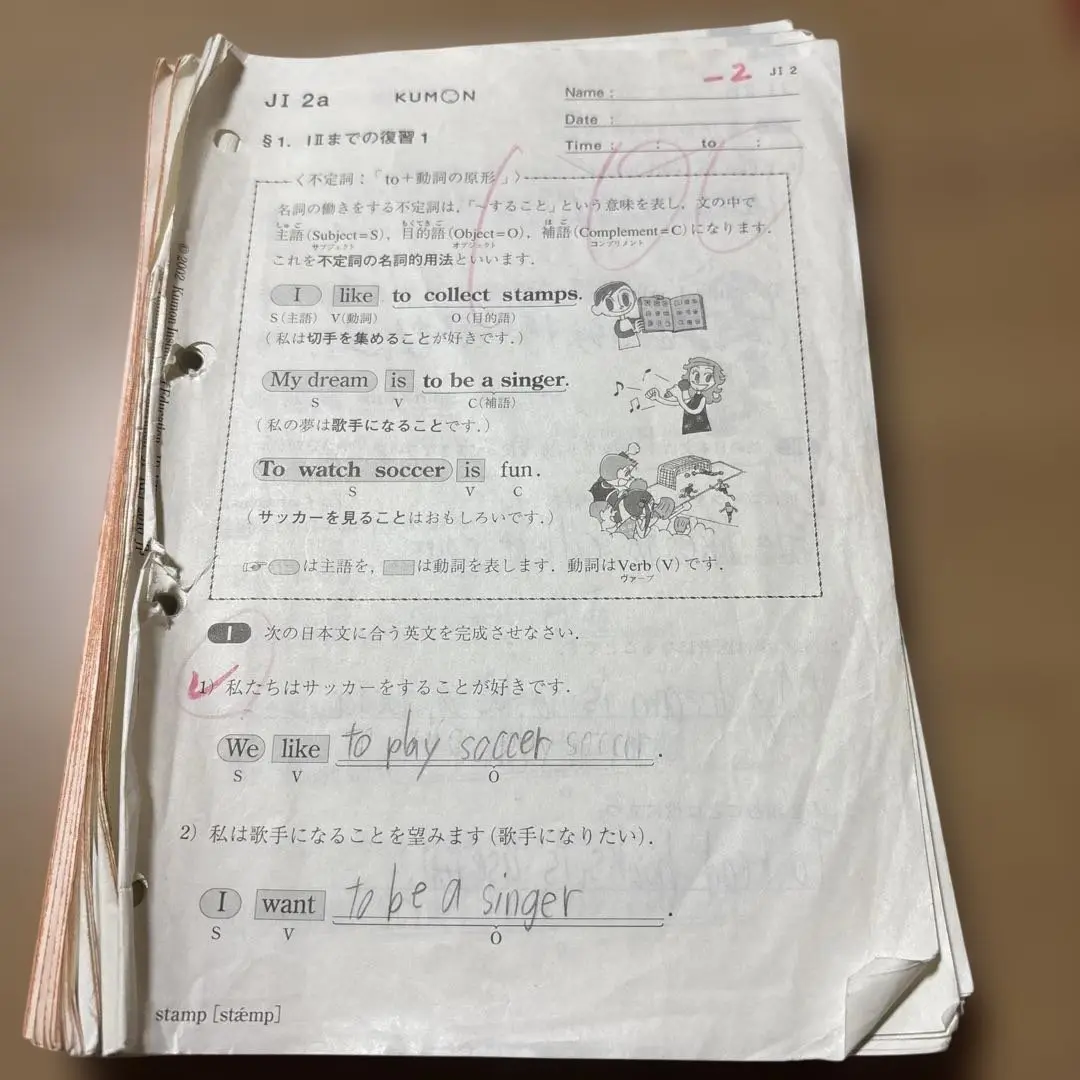 -2 JI 2
JI 2a KUMON Name :
Date :
§1. IⅡまでの復習1 Time : : to :
100
〈不定詞:「to+動詞の原形」〉
名詞の働きをする不定詞は,「~すること」という意味を表し, 文の中で
しゅご もくてきご ほご
主語(Subject=S), 目的語(Object=O), 補語(Complement=C)になります.
サブジェクト オブジェクト コンプリメント
これを不定詞の名詞的用法といいます.
I like to collect stamps.
S(主語) V(動詞) O(目的語)
(私は切手を集めることが好きです.)
My dream is to be a singer.
S V C(補語)
(私の夢は歌手になることです.)
To watch soccer is fun.
S V C
(サッカーを見ることはおもしろいです.)
☞ は主語を, は動詞を表します. 動詞はVerb(V)です.
ヴァーブ
1 次の日本文に合う英文を完成させなさい.
1) 私たちはサッカーをすることが好きです.
We like to play soccer .
S V O
2) 私は歌手になることを望みます(歌手になりたい).
I want to be a singer .
S V O
stamp [stǽmp]
© 2002 Kumon